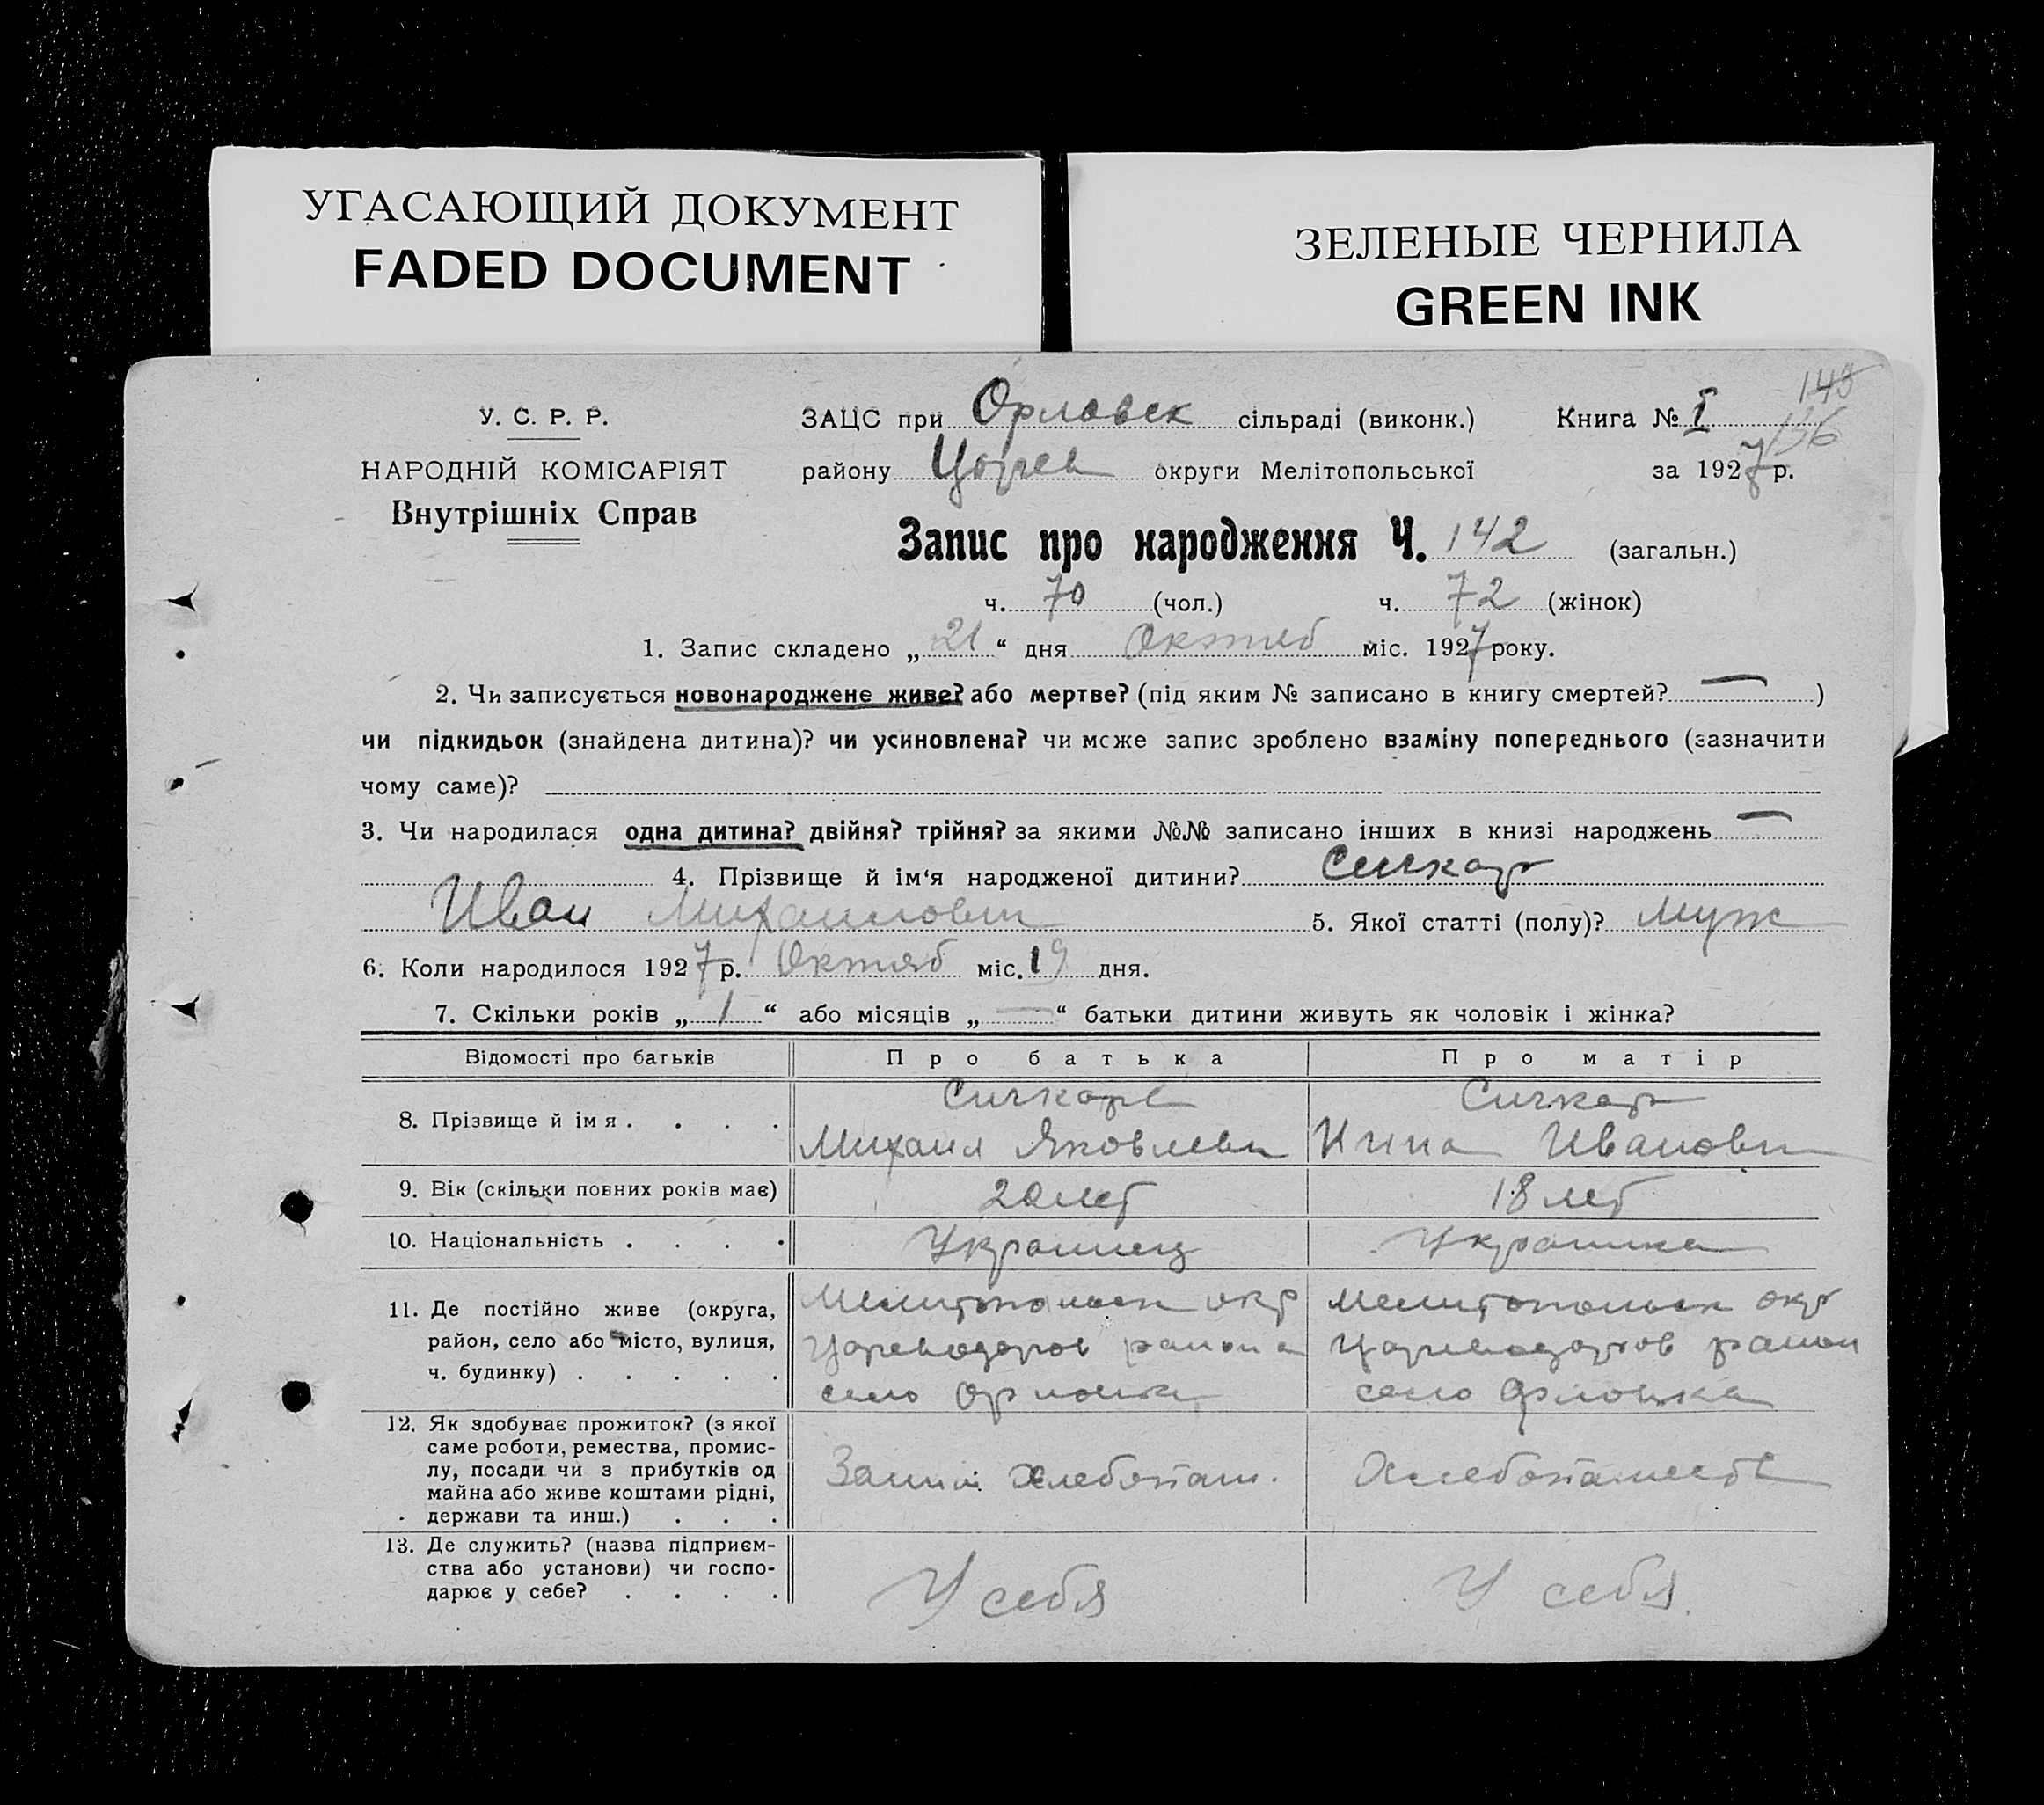 УГАСАЮЩИЙ ДОКУМЕНТ
FADED DOCUMENT
ЗЕЛЕНЫЕ ЧЕРНИЛА
GREEN INK
У. С. Р. Р.
НАРОДНІЙ КОМІСАРІЯТ
Внутрішніх Справ
143
ЗАЦС при Орловск сільраді (виконк.) Книга № I
136
району Царев округи Мелітопольської за 1927 р.
Запис про народження Ч. 142 (загальн.)
ч. 70 (чол.) ч. 72 (жінок)
1. Запис складено „ 21 “ дня Октяб міс. 1927 року.
2. Чи записується новонароджене живе? або мертве? (під яким № записано в книгу смертей? — )
чи підкидьок (знайдена дитина)? чи усиновлена? чи може запис зроблено взаміну попереднього (зазначити
чому саме)?
3. Чи народилася одна дитина? двійня? трійня? за якими №№ записано інших в книзі народжень —
4. Прізвище й ім‘я народженої дитини? Сичкар
Иван Михаилович 5. Якої статті (полу)? Муж
6. Коли народилося 1927 р. Октяб міс. 19 дня.
7. Скільки років „ 1 “ або місяців „ — “ батьки дитини живуть як чоловік і жінка?
Відомості про батьків Про батька Про матір
8. Прізвище й імя . . . . Сичкарь Сичкар
Михаил Яковлеви Нина Иванови
9. Вік (скільки повних років має) 20 лет 18 лет
10. Національність . . . . Украинец Украинка
11. Де постійно живе (округа, Мелитопольск окр Мелитопольск окр
район, село або місто, вулиця, Цареводаров района Цареводаров район
ч. будинку) . . . . . село Орловка село Орловка
12. Як здобуває прожиток? (з якої
саме роботи, ремества, промис-
лу, посади чи з прибутків од Заним Хлебопаш. Хлебопашеств
майна або живе коштами рідні,
держави та инш.) . . .
13. Де служить? (назва підприєм-
ства або установи) чи госпо- У себя У себя
дарює у себе? . . . .